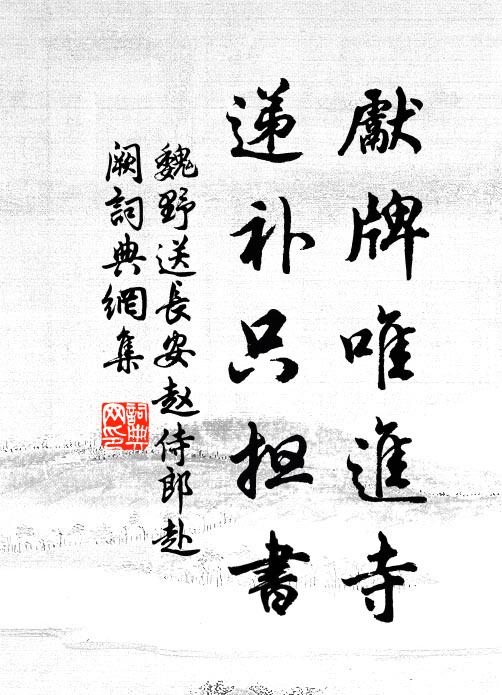 獻牌唯進寺
递补只担書
魏野送長安赵侍郎赴
阙詞典網集
詞典网印